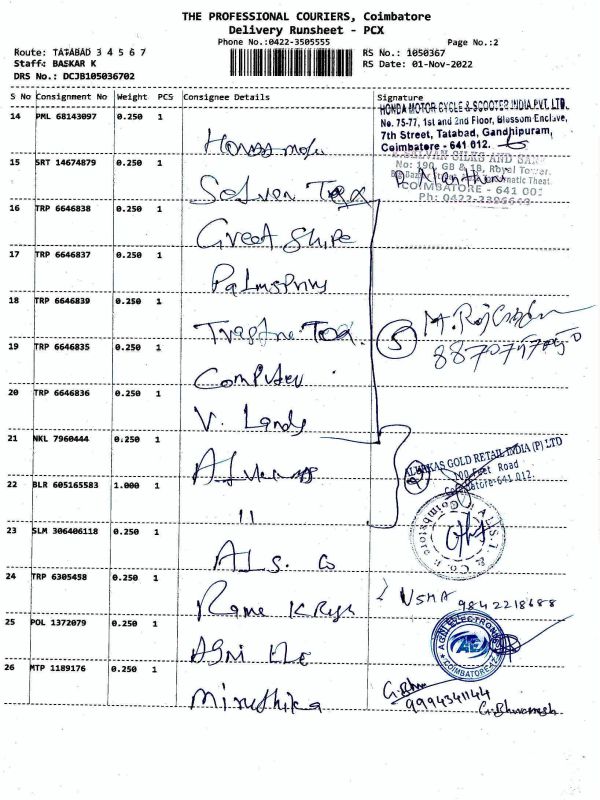 THE PROFESSIONAL COURIERS, Coimbatore
Delivery Runsheet - PCX
Phone No.:0422-3505555
Page No.:2
Route: TATABAD 3 4 5 6 7
Staff: BASKAR K
DRS No.: DCJB105036702
RS No.: 1050367
RS Date: 01-Nov-2022
S No Consignment No Weight PCS Consignee Details Signature
14 PML 68143097 0.250 1
HONDA MOTOR CYCLE & SCOOTER INDIA PVT. LTD.
No. 75-77, 1st and 2nd Floor, Blossom Enclave,
7th Street, Tatabad, Gandhipuram,
Coimbatore - 641 012.
15 SRT 14674879 0.250 1
No: 190, GB & 1B, Royal Tower
COIMBATORE - 641 001
16 TRP 6646838 0.250 1
Great Shine
17 TRP 6646837 0.250 1
18 TRP 6646839 0.250 1
5
19 TRP 6646835 0.250 1
Computer
20 TRP 6646836 0.250 1
V. Lands
21 NKL 7960444 0.250 1
ALUKKAS GOLD RETAIL INDIA (P) LTD
100 Feet Road
Coimbatore-641 012.
22 BLR 605165583 1.000 1
11
23 SLM 306406118 0.250 1
ALS. Co
24 TRP 6305458 0.250 1
USHA 9842218688
25 POL 1372079 0.250 1
Agni Ele
AGNI ELECTRONICS
AE
COIMBATORE-12
26 MTP 1189176 0.250 1
Miruthika
9994341144
G. Bhuvanesh